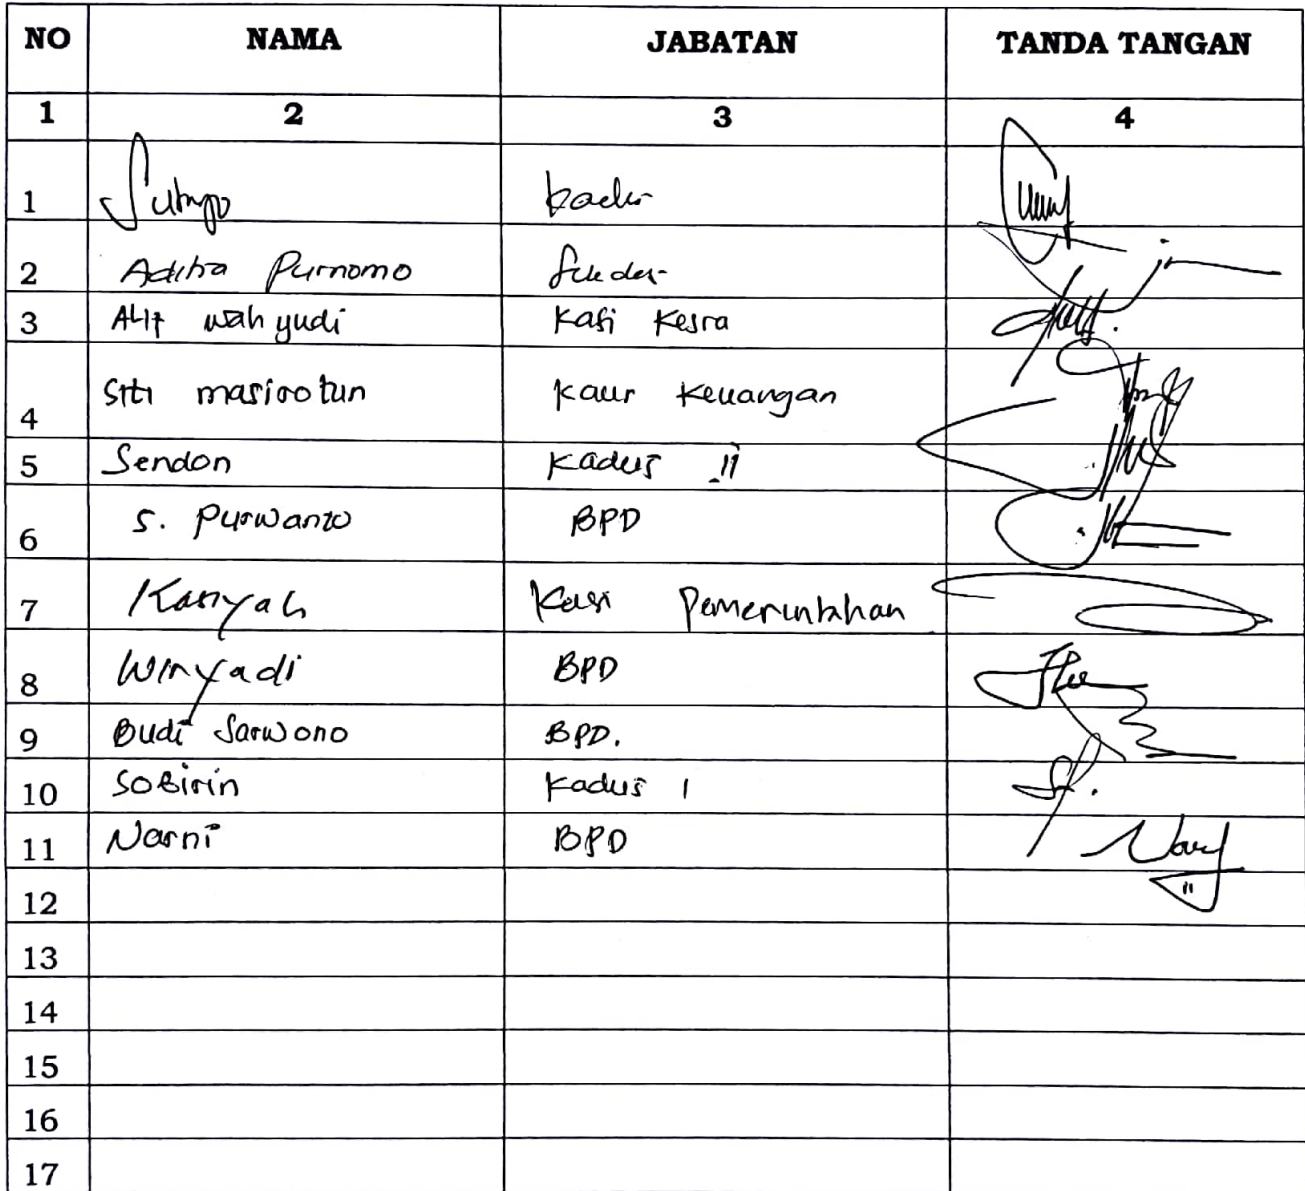 NO NAMA JABATAN TANDA TANGAN
1 2 3 4
1
2 Purnomo
3 Alif wahyudi Kasi Kesra
4 Siti masirotun Kaur Keuangan
5 Sendon Kadus II
6 S. Purwanto BPD
7 Kasi Pemerintahan
8 Winyadi BPD
9 Budi Sarwono BPD.
10 SOBirin Kadus I
11 Narni BPD
12
13
14
15
16
17